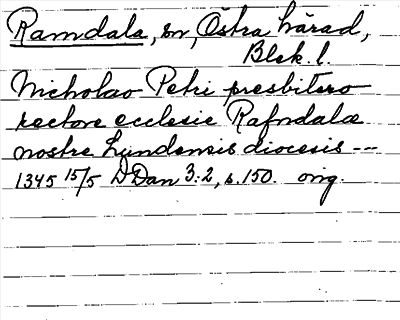 Ramdala, sn, Östra härad,
Blek. l.
Nicholao Petri presbitero
rectore ecclesie Rafndala
nostre Lundensis diocesis ---
1345 15/5 DDan 3:2, s. 150. orig.